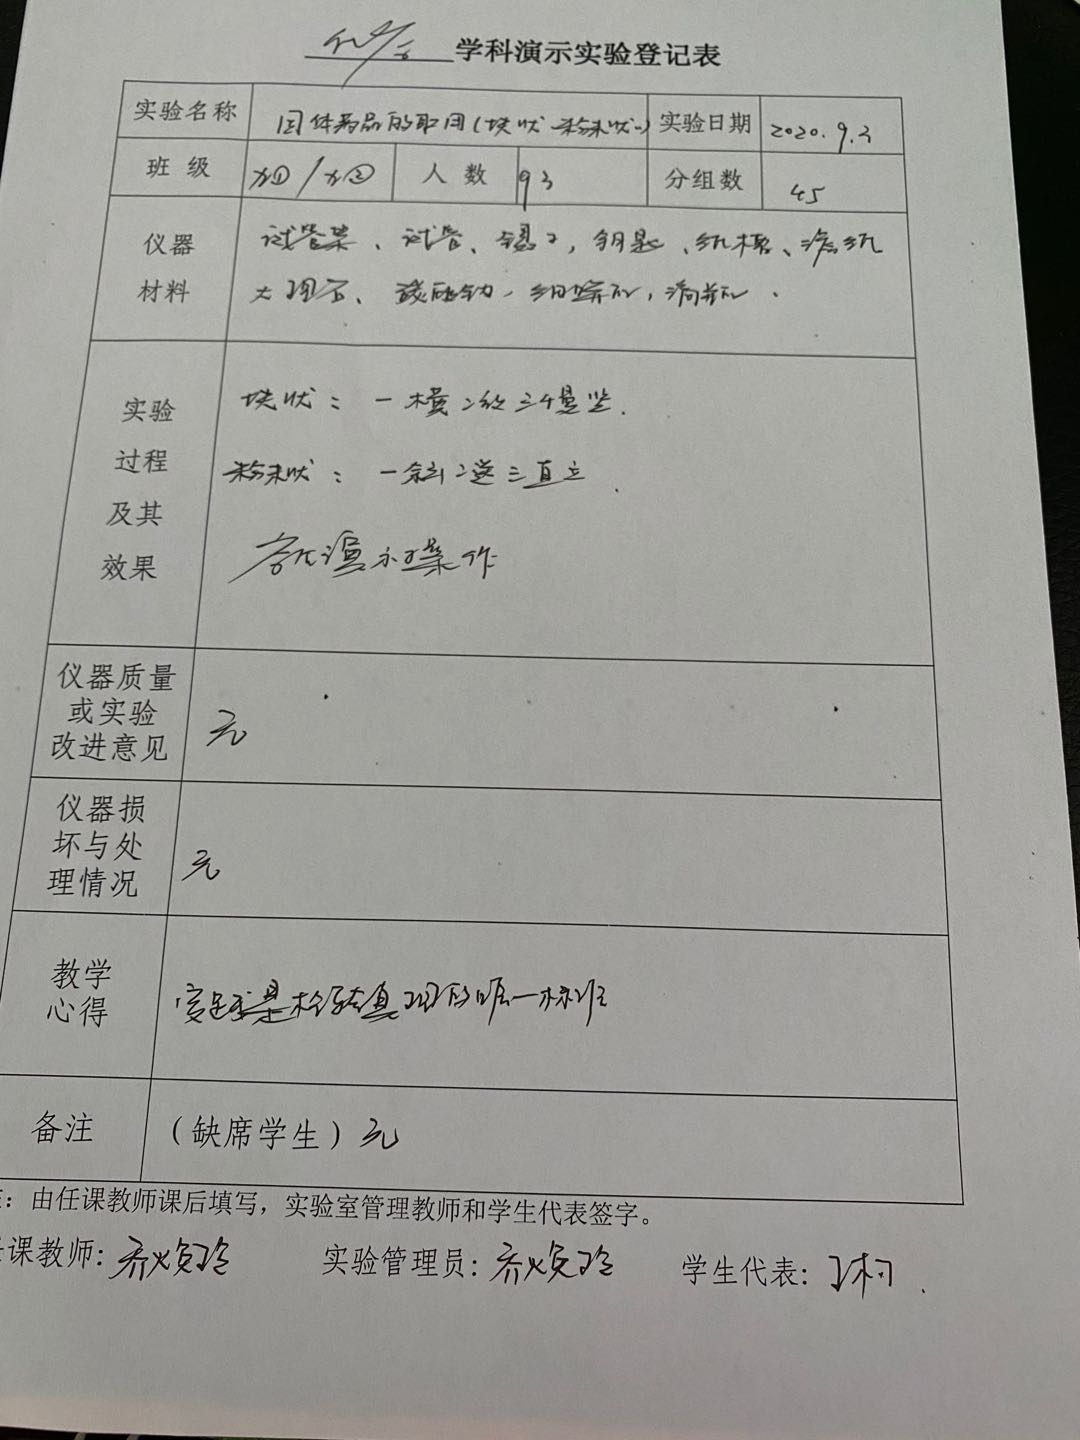 化学 学科演示实验登记表
实验名称 固体药品的取用(块状 粉末状) 实验日期 2020.9.3
班级 九① / 九② 人数 93 分组数 45
仪器
材料
试管架、试管、镊子,钥匙、纸槽、滤纸
大理石、碳酸钠、细口瓶,滴瓶.
实验
过程
及其
效果
块状: 一横二放三慢竖.
粉末状: 一斜二送三直立.
演示操作
仪器质量
或实验
改进意见
无
仪器损
坏与处
理情况
无
教学
心得
实践是检验真理的唯一标准
备注 (缺席学生)无
:由任课教师课后填写,实验室管理教师和学生代表签字。
课教师: 实验管理员: 学生代表: